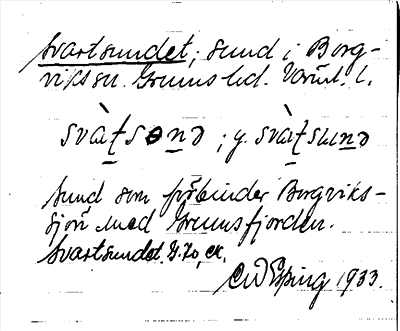 Svartsundet; sund i Borg-
vikssn. Grums hd. Värml. l.
svàt̠sɵn̠d ; y. svàt̠sun̠d
Sund som förbinder Borgviks-
sjön med Grumsfjorden.
Svartsundet. G. 20, ek.
CW Esping 1933.